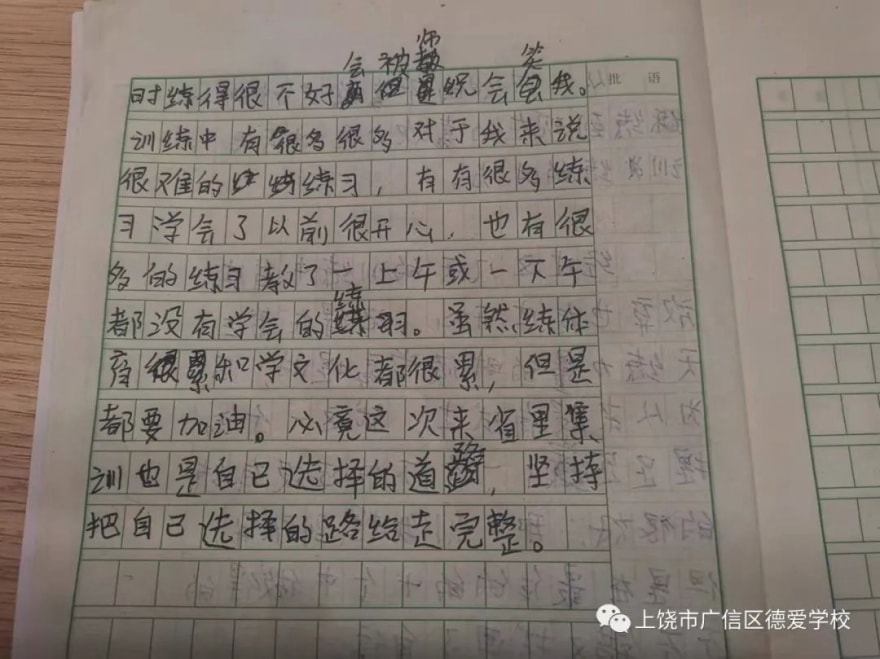 会被师教 笑
时练得很不好但是祝会自我。
批语
训练中有很多很多对于我来说
很难的练习，有有很多练
习学会了以前很开心，也有很
多的练习教了一上午或一下午
都没有学会的练习。虽然练体
育很累和学文化都很累，但是
都要加油。必竟这次来省里集
训也是自己选择的道路，坚持
把自己选择的路给走完整。
上饶市广信区德爱学校